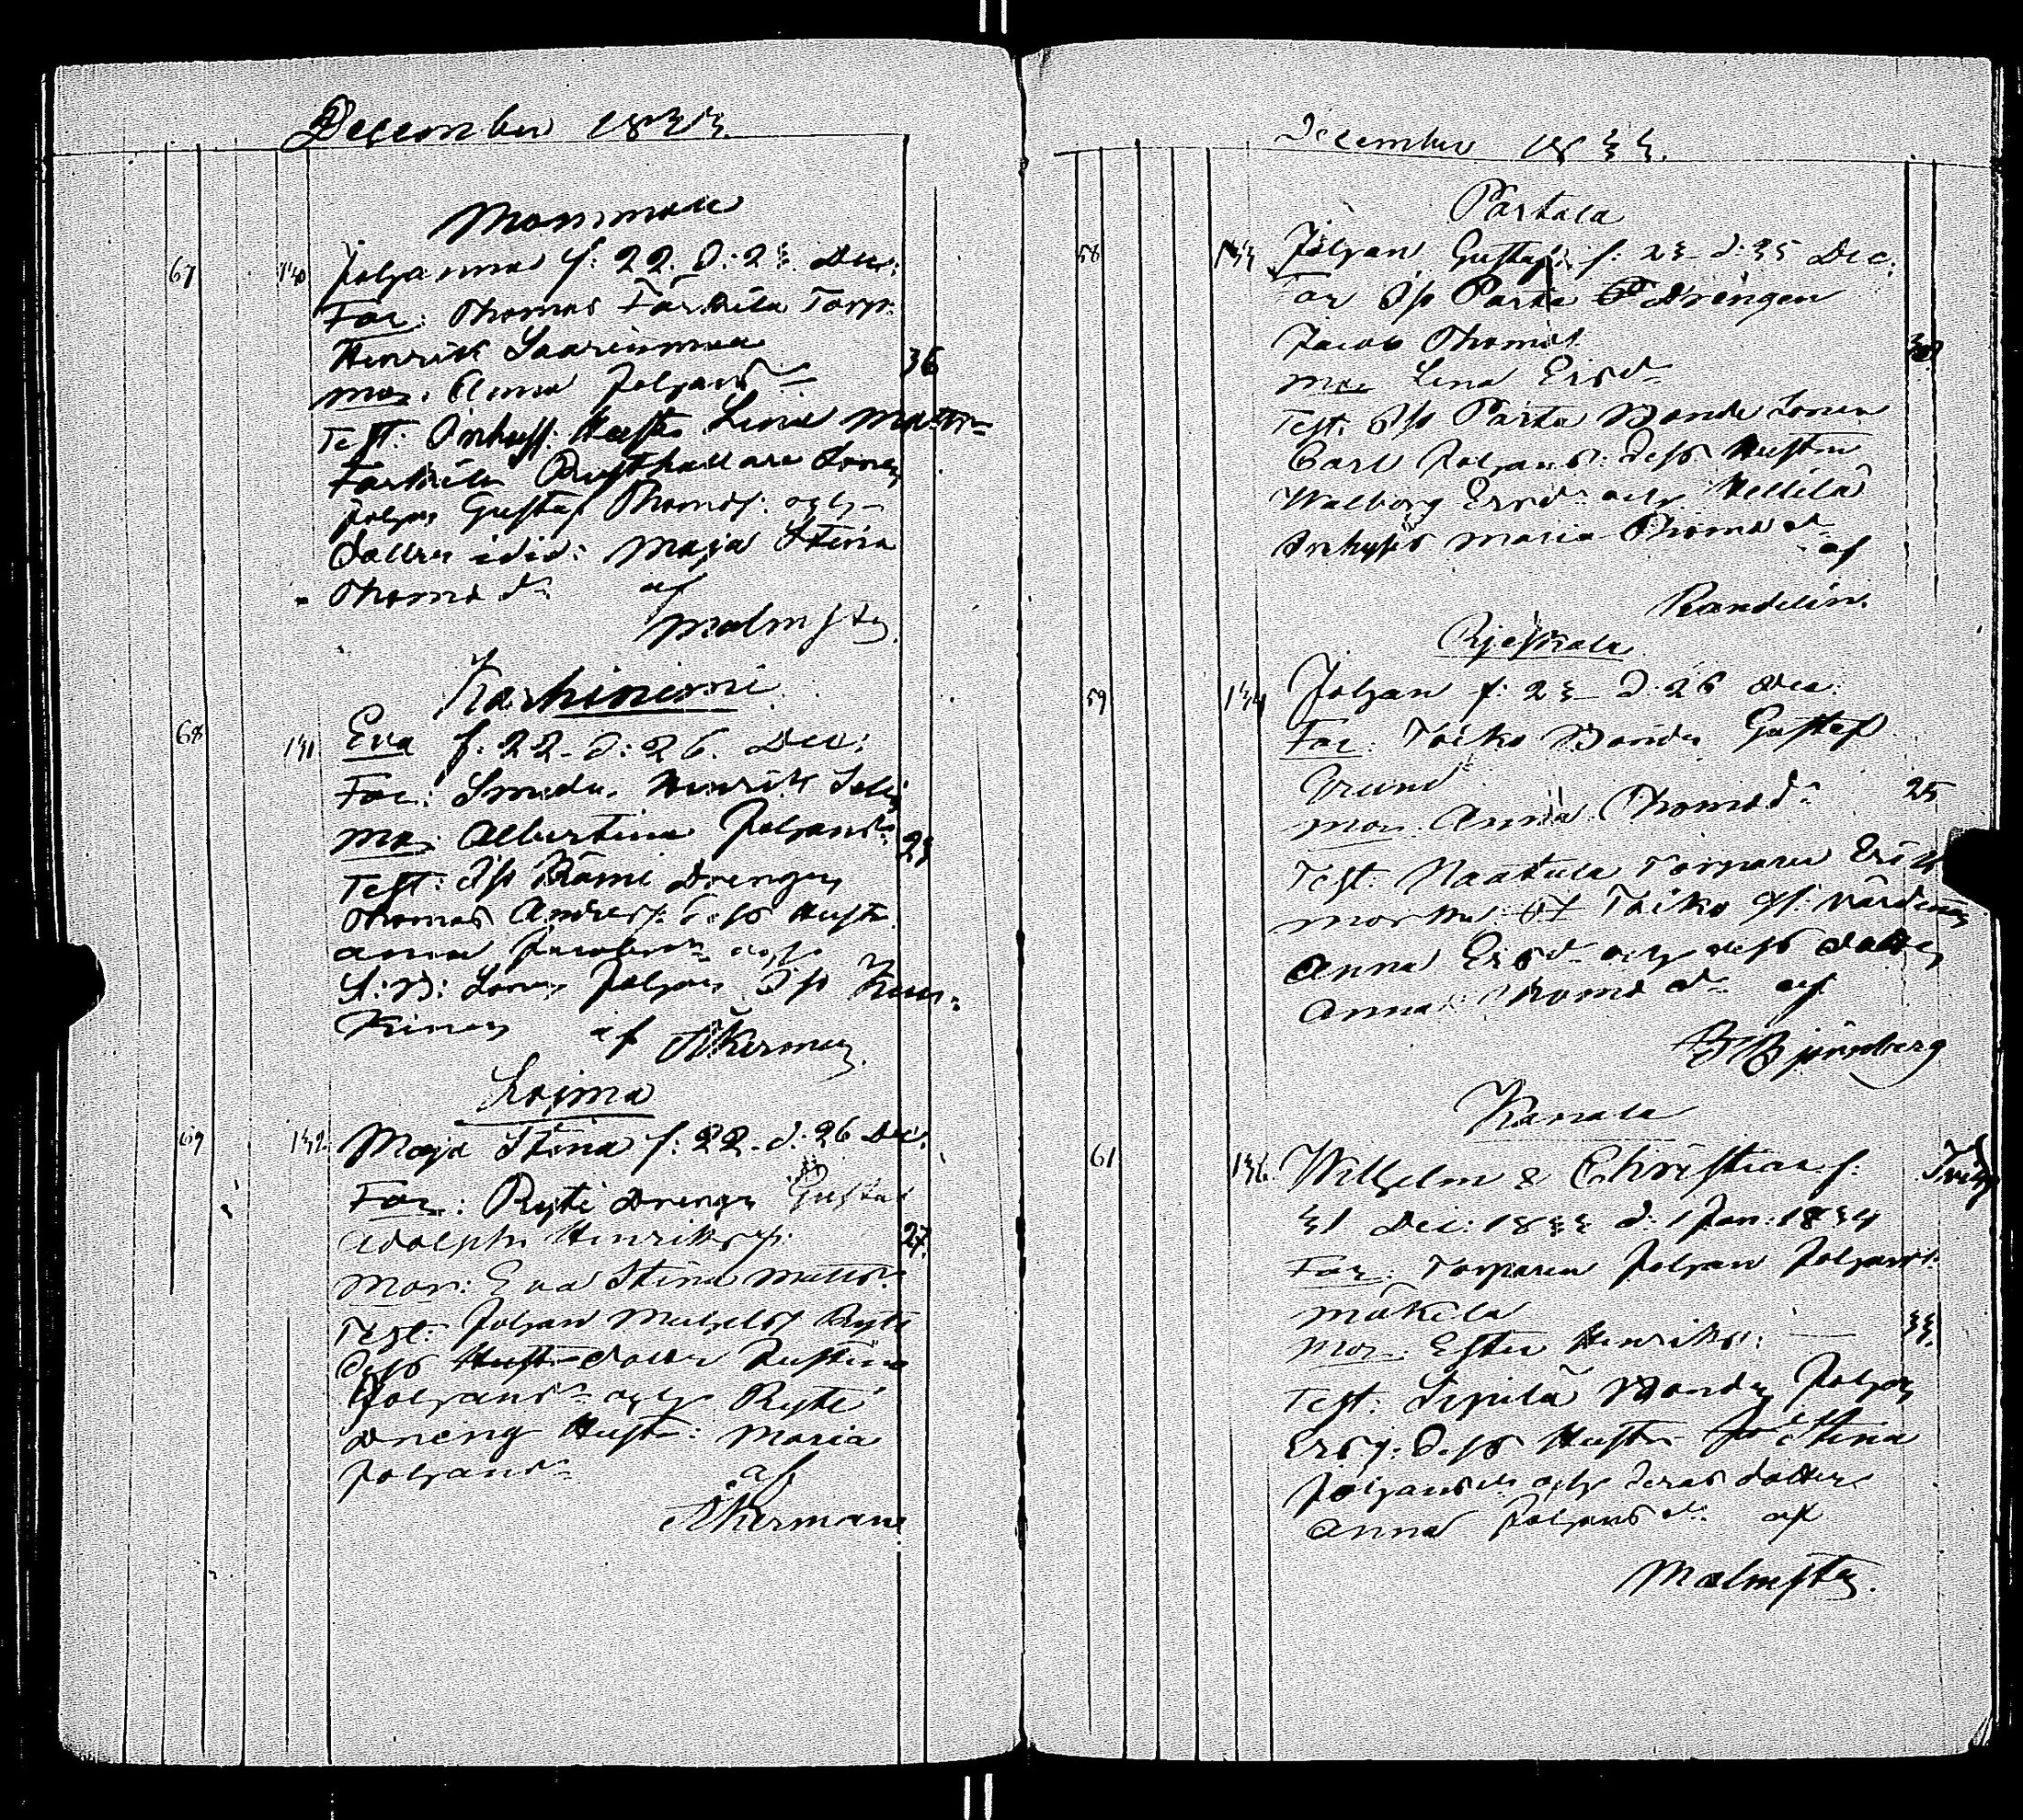 December 1833.
Mommola
67 130 Johanna f: 22. d: 23. Dec:
Far: Thomas Farkila Torp:
Henrik Saarenmaa
Mor: Anna Johansdr 36
Test: Inhys: Hustr: Lena Mattsdr
Farkila Rusthållare Sonen
Johan Gustaf Thomass: och
Dottren ibid: Maja Stina
Thomasdr af
Malmstén.
Karhiniemi
68 131 Eva f: 22. d: 26. Dec:
Far: Smeden Henrik Selin
Mor: Albertina Johansdr 29
Test: Öfv Rämi Drengen
Thomas Anders: dess Hustr
Anna Jacobsdr och
S: B: Sonen Johan Öfv
af Åkerman.
Loima
69 132. Maja Stina f: 22. d: 26 Dec:
Far: Ryti Drengen Gustaf
Adolph Henrikss: 27.
Mor: Eva Stina Mattsdr
Test: Johan Michelss Ryti
dess Dotter Justina
Johansdr och Ryti
Dreng Hustr: Maria
Johansdr
af
Åkerman
December 1833.
Partala
58 133 Johan Gustaf f: 23 d: 25 Dec:
Far Öfv Parta Drengen
Jacob Thomass
Mor Lena Ersdr
Test. Öfv Parta Bonde Sonen
Carl Johans: dess Hustru
Walborg Ersdr och Hellilä
Inhyses Maria Thomasdr
af
Randelin.
59 134 Johan f: 23 d. 26 Dec:
Far: Toiko Bonden Gustaf
Mor: Anna Thomasdr 25
Test: Naatula Torparen Erik
Toiko Gl: Värdinnan
Anna Ersdr och dess Dotter
Anna Thomasdr af
Björnberg
Kanala
61 136. Wilhelm & Christian f. Tvill
31 Dec: 1833 d. 1 Jan: 1834
Far: Torparen Johan Johanss:
Mäkelä
Mor: Ester Henriksdr: 33.
Test: Sipilä Bonden Johan
Erss: dess Hustr Stina
Johansdr och deras dotter
Anna Johansdr af
Malmstén.